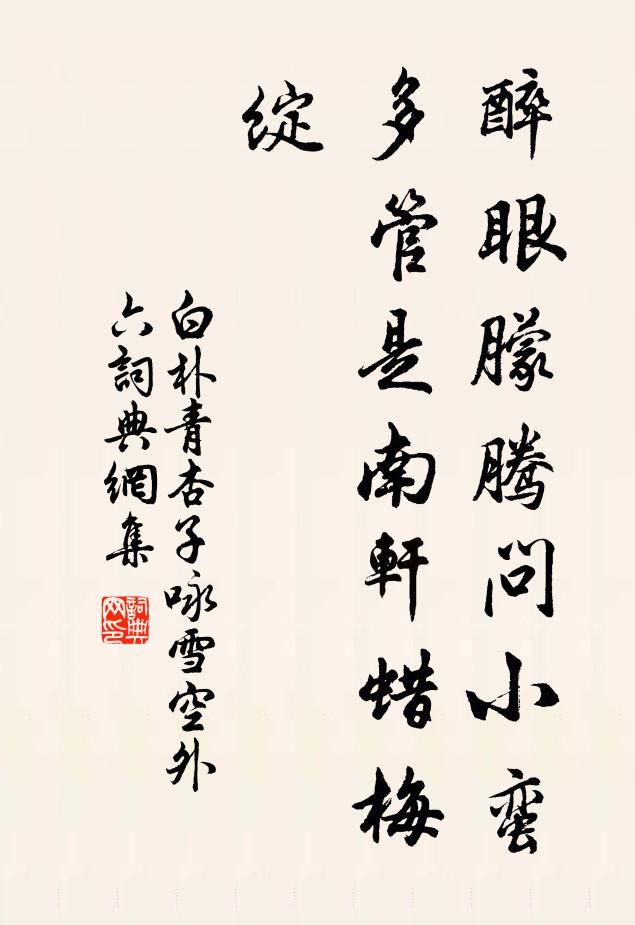 醉眼朦騰問小蛮
多管是南軒蜡梅
綻
白朴青杏子咏雪空外
六詞典網集
詞典网印